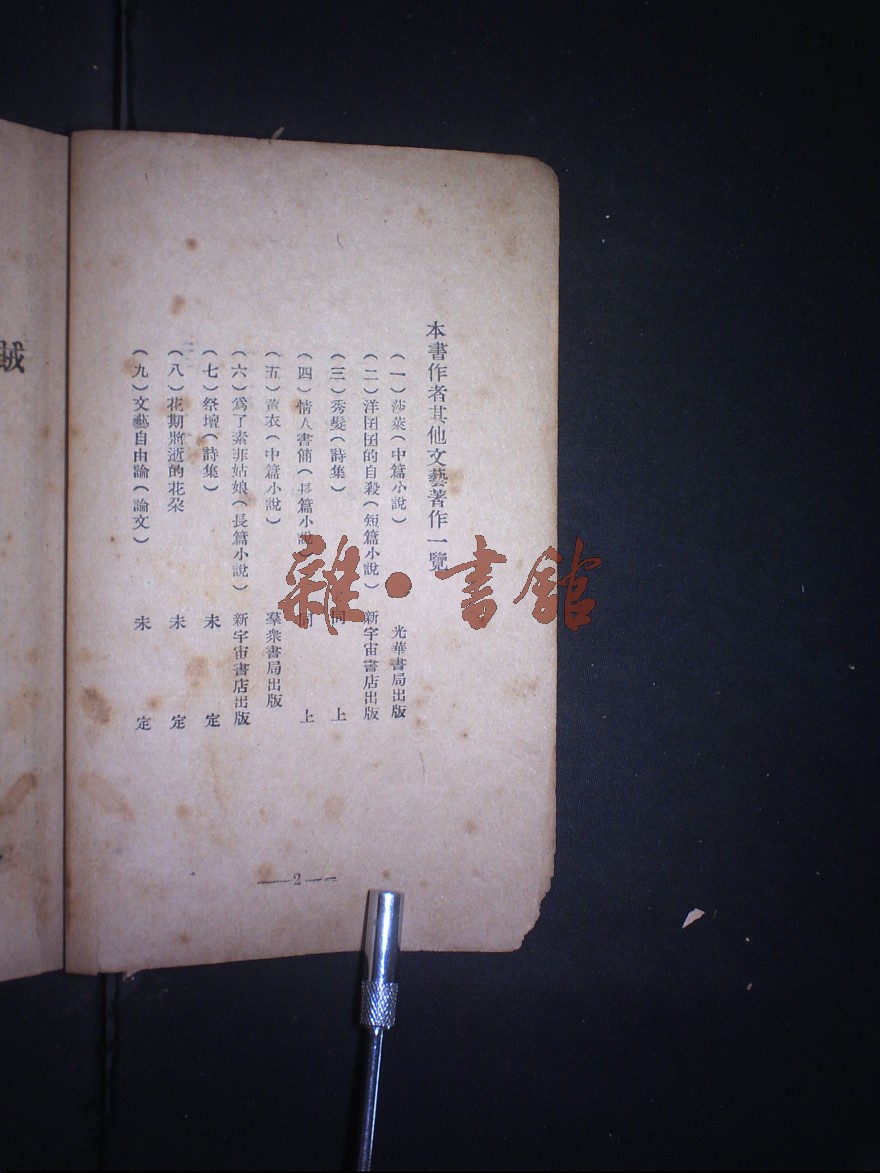 本書作者其他文藝著作一覽
（一）莎菜（中篇小說）　光華書局出版
（二）洋囝囝的自殺（短篇小說）　新宇宙書店出版
（三）秀髮（詩集）　同上
（四）情人書簡（長篇小說）　同上
（五）黃衣（中篇小說）　羣衆書局出版
（六）爲了素菲姑娘（長篇小說）　新宇宙書店出版
（七）祭壇（詩集）　未定
（八）花期將逝的花朶　未定
（九）文藝自由論（論文）　未定
—2—
賊
雜·書館